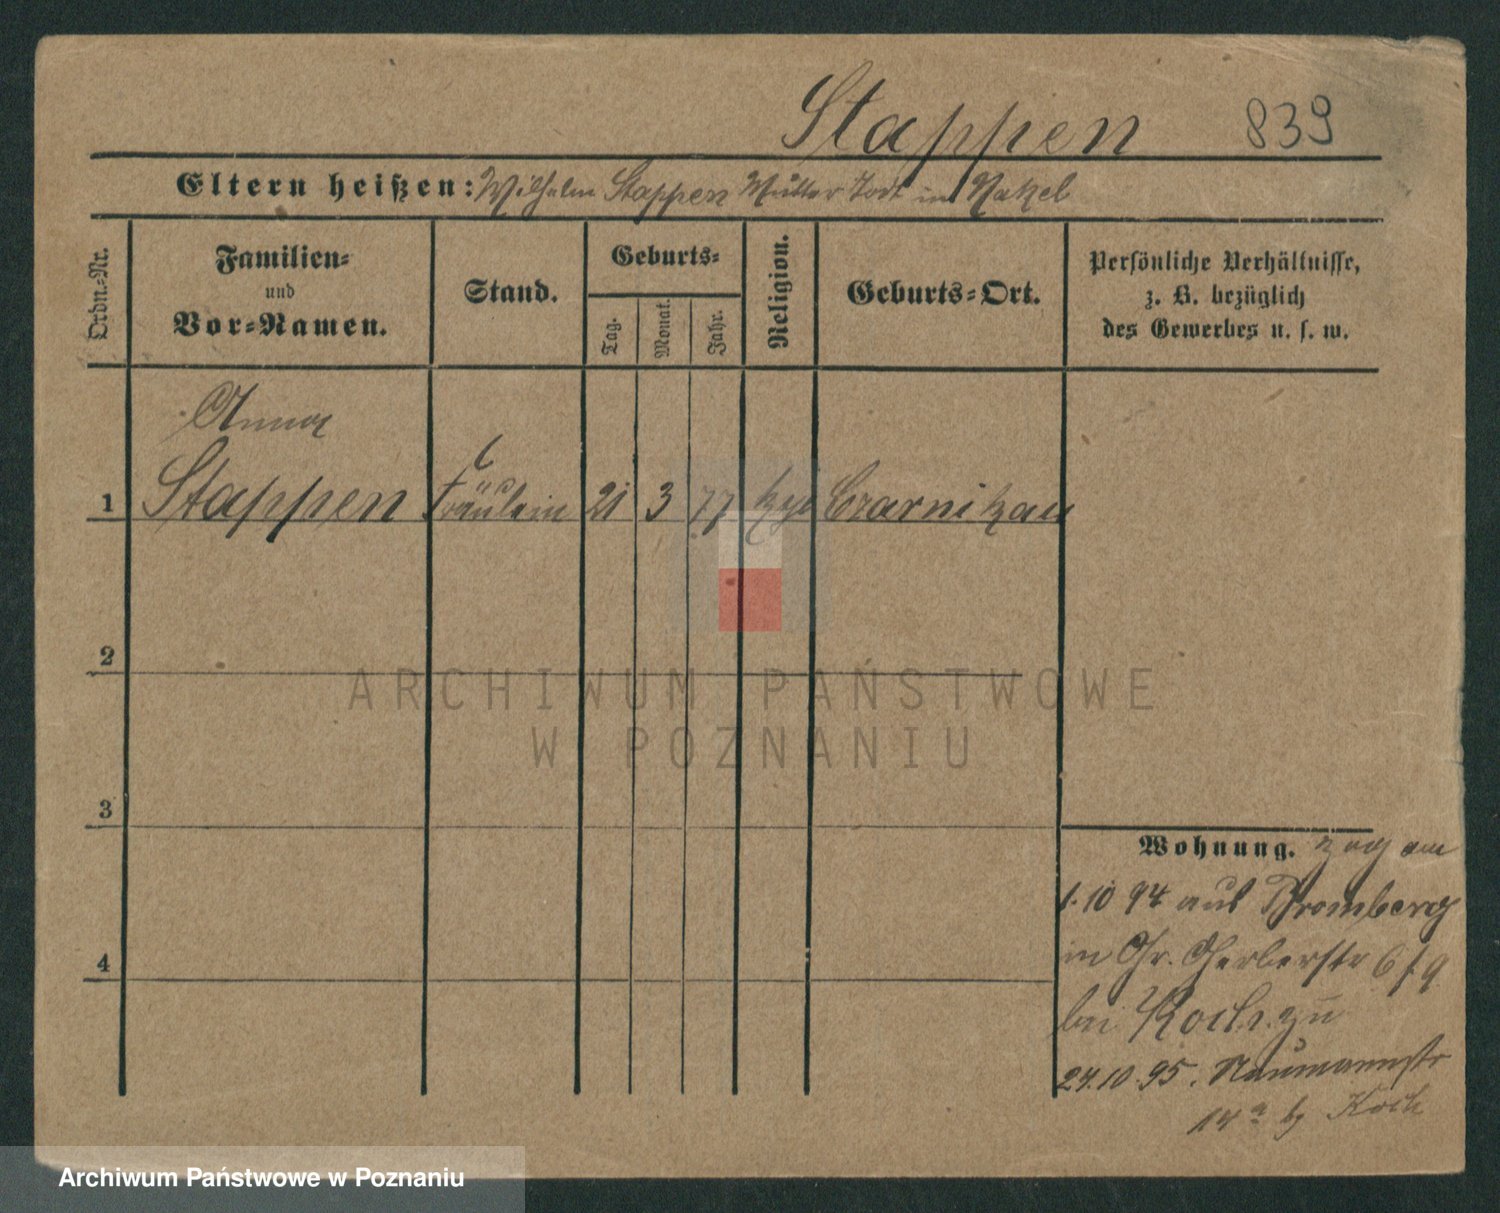 Stappen 839
Eltern heißen: Wilhelm Stappen Mutter Todt in Nakel
Ordn.-Nr.
Familien-
und
Vor-Namen.
Stand.
Geburts-
Tag.
Monat.
Jahr.
Religion.
Geburts-Ort.
Persönliche Verhältnisse,
z. B. bezüglich
des Gewerbes u. s. w.
Anna
1 Stappen Fräulein 21 3 77 Czarnikau
2
3
4
ARCHIWUM PAŃSTWOWE
W POZNANIU
Wohnung. zog am
1.10 94 aus Bromberg
in Gr. Gerberstr 6
bei Koch. zu
24.10.95. Naumannstr
14a Koch
Archiwum Państwowe w Poznaniu